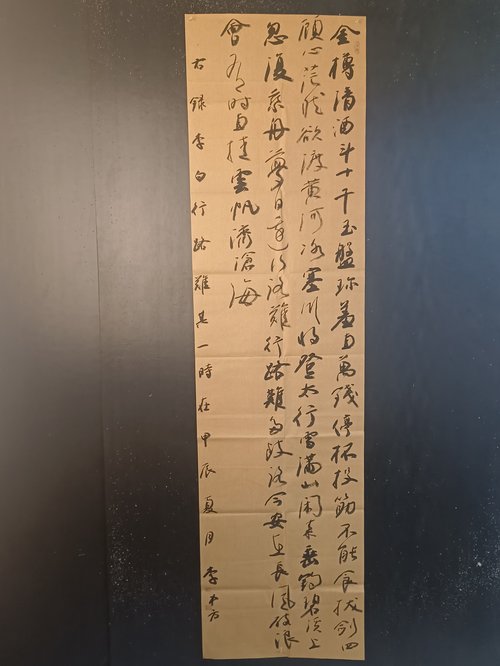 金樽清酒斗十千玉盤珍羞直萬錢停杯投筯不能食拔劍四
顧心茫然欲渡黃河冰塞川將登太行雪滿山閑來垂釣碧溪上
忽復乘舟夢日邊行路難行路難多歧路今安在長風破浪
會有時直挂雲帆濟滄海
右錄李白行路難其一時在甲辰夏月李